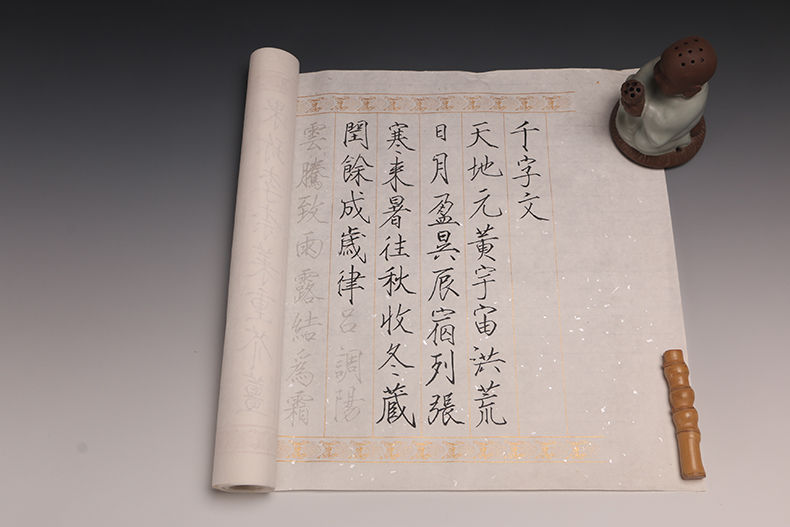 千字文
天地元黃宇宙洪荒
日月盈昃辰宿列張
寒来暑往秋收冬藏
閏餘成歲律吕調陽
雲騰致雨露結為霜